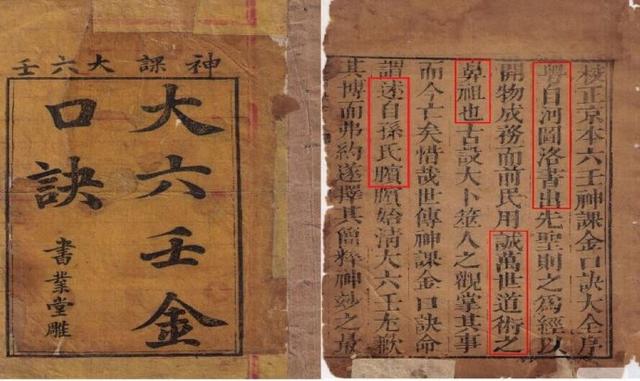 神課大六壬
大六壬金
口訣
書業堂雕
校正京本六壬神課金口訣大全序
粵自河圖洛書出先聖則之為經以
開物成務而前民用誠萬世道術之
鼻祖也古設大卜筮人之觀掌其事
而今亡矣惜哉世傳神課金口訣命
謂述自孫氏臏臏始清大六壬尤歉
其博而弗約遂擇其簡粹神妙之最